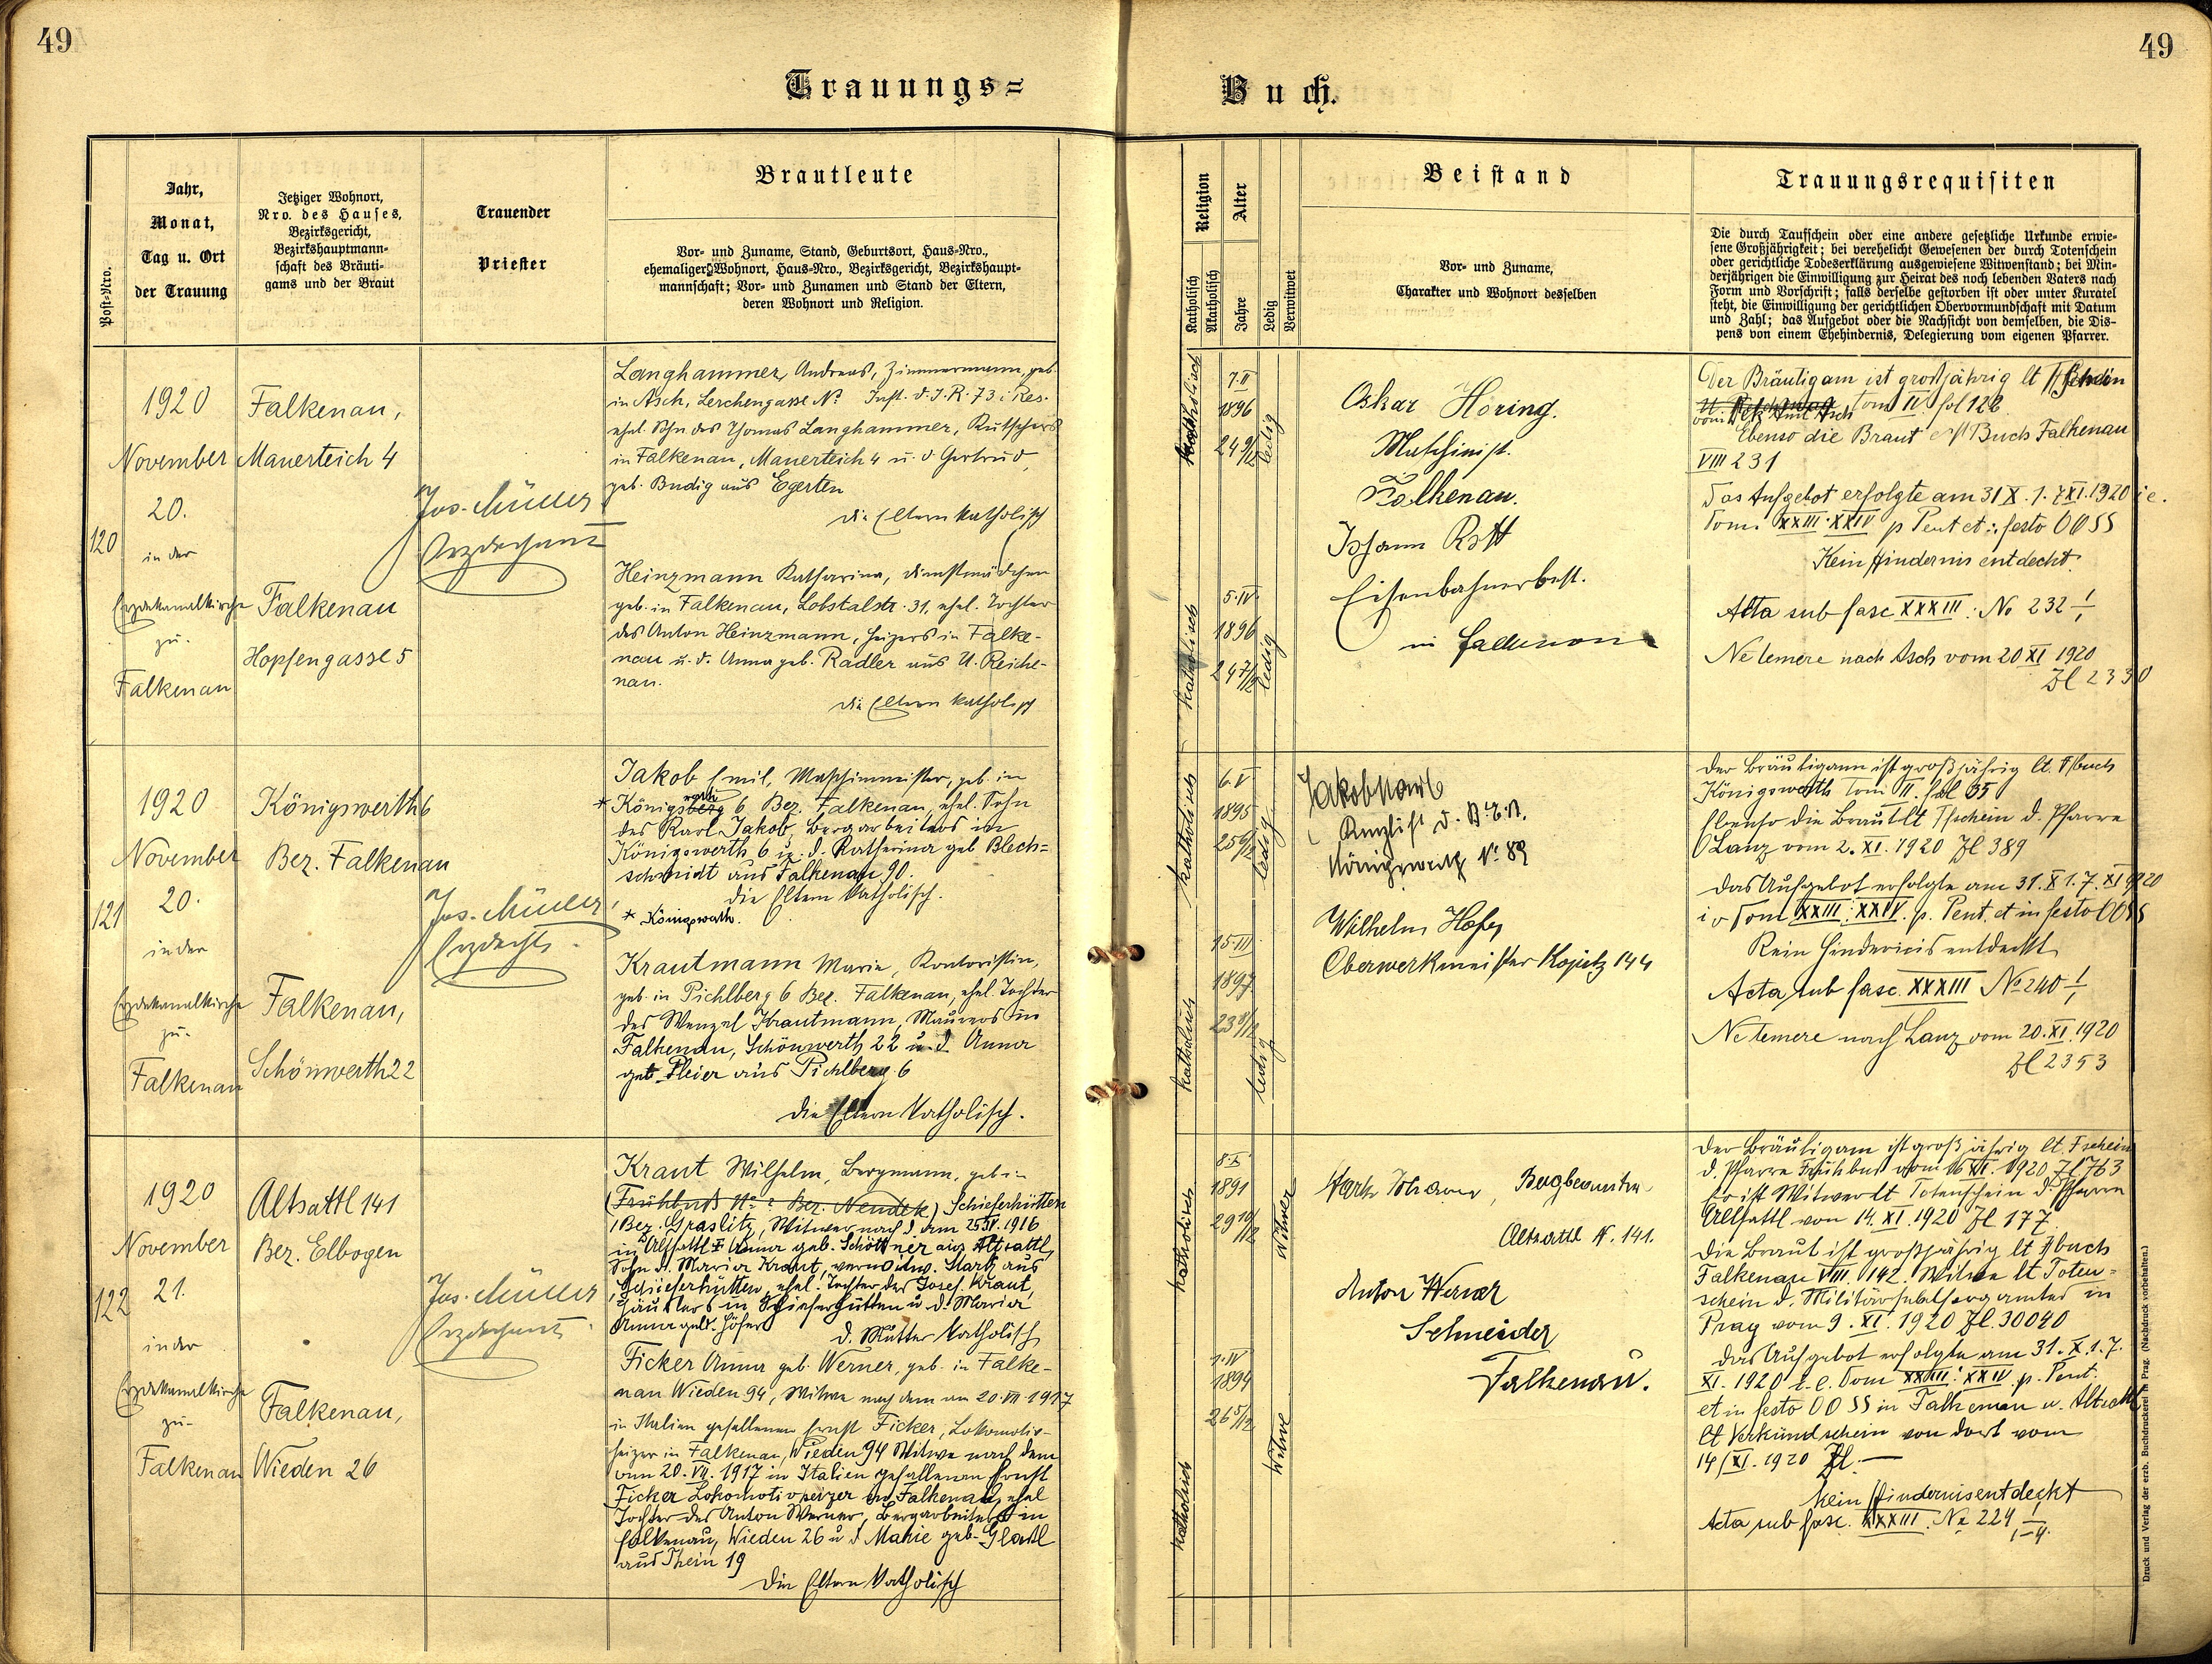 49
49
Trauungs=
Buch.
Post-Nro.
Jahr,
Monat,
Tag u. Ort
der Trauung
Jetziger Wohnort,
Nro. des Hauses,
Bezirksgericht,
Bezirkshauptmann-
schaft des Bräuti-
gams und der Braut
Trauender
Priester
Brautleute
Vor- und Zuname, Stand, Geburtsort, Haus-Nro.,
ehemaliger Wohnort, Haus-Nro., Bezirksgericht, Bezirkshaupt-
mannschaft; Vor- und Zunamen und Stand der Eltern,
deren Wohnort und Religion.
Religion
Katholisch
Akatholisch
Alter
Jahre
Ledig
Verwitwet
Beistand
Vor- und Zuname,
Charakter und Wohnort desselben
Trauungsrequisiten
Die durch Taufschein oder eine andere gesetzliche Urkunde erwie-
sene Großjährigkeit; bei verehelicht Gewesenen der durch Totenschein
oder gerichtliche Todeserklärung ausgewiesene Witwenstand; bei Min-
derjährigen die Einwilligung zur Heirat des noch lebenden Vaters nach
Form und Vorschrift; falls derselbe gestorben ist oder unter Kuratel
steht, die Einwilligung der gerichtlichen Obervormundschaft mit Datum
und Zahl; das Aufgebot oder die Nachsicht von demselben, die Dis-
pens von einem Ehehindernis, Delegierung vom eigenen Pfarrer.
120
1920
November
20.
in der
Erzdekanalkirche
zu
Falkenau
Falkenau,
Mauerteich 4
Falkenau
Hopfengasse 5
Jos. Müller
Erzdechant
Langhammer, Andreas, Zimmermann, geb.
in Asch, Lerchengasse No Inft. d. I. R. 73 i Res.
ehel. Sohn des Thomas Langhammer, Kutschers
in Falkenau, Mauerteich 4 u. d. Gertrud,
geb. Budig aus Egerten
die Eltern katholisch
Heinzmann Katharina, Dienstmädchen
geb. in Falkenau, Lobstalstr. 31, ehel. Tochter
des Anton Heinzmann, Heizers in Falke-
nau u. d. Anna geb. Radler aus U. Reiche-
nau.
die Eltern katholisch
katholisch
7. II
1896
24 9/12
ledig
katholisch
5. IV.
1896
24 7/12
ledig
Oskar Horing.
Maschinist.
Falkenau.
Johann Rott
Eisenbahnerbest.
in Falkenau
Der Bräutigam ist großjährig lt Tschein
vom Asch tom IV fol 128
Ebenso die Braut Buch Falkenau
VIII 231
Das Aufgebot erfolgte am 31 X. 1. 7 XI. 1920 i. e.
Dom. XXIII. XXIV p Pent et festo OOSS
Kein Hindernis entdeckt.
Akta sub fasc XXXIII. No 232 1/1
Ne temere nach Asch vom 20 XI 1920
Zl 2330
121
1920
November
20.
in der
Erzdekanalkirche
zu
Falkenau
Königswerth 6
Bez. Falkenau
Falkenau,
Schönwerth 22
Jos. Müller,
Erzdecht.
Jakob Emil, Maschinmeister, geb. in
* Königsberg 6 Bez. Falkenau, ehel. Sohn
des Karl Jakob, Bergarbeiters in
Königswerth 6 u. d. Katharina geb Blech=
schmidt aus Falkenau 90.
die Eltern katholisch.
* Königswerth.
Krautmann Marie, Kontoristin,
geb. in Pichlberg 6 Bez. Falkenau, ehel. Tochter
des Wenzel Krautmann, Maurers in
Falkenau, Schönwerth 22 u. d. Anna
geb. Pleier aus Pichlberg 6
die Eltern katholisch.
katholisch
6. V
1895
25 6/12
ledig
katholisch
15. III.
1897
23 8/12
ledig
Jakob Karl
Kanzlist d. B. E. B.
Königswerth No. 89
Wilhelm Hofer
Oberwerkmeister Kopitz 144
Der Bräutigam ist großjährig lt. Tfbuch
Königswerth Tom II. fol 65
Ebenso die Braut lt Tfschein d. Pfarre
Lanz vom 2. XI. 1920 Zl 389
Das Aufgebot erfolgte am 31. X 1. 7. XI 1920
Dom XXIII. XXIV. p. Pent. et in festo OOSS
Kein Hindernis entdeckt
Acta sub fasc. XXXIII No 240 1/1
Ne temere nach Lanz vom 20. XI. 1920
Zl 2353
122
1920
November
21.
in der
Erzdekanalkirche
zu
Falkenau
Altsattl 141
Bez. Elbogen
Falkenau,
Wieden 26
Jos. Müller
Erzdechant
Kraut Wilhelm, Bergmann, geb in
(Frühbuß No ? Bez. Neudek) Schieferhütten
Bez. Graslitz, Witwer nach d. am 25 XI. 1916
in Altsattl + Anna geb. Schöttner aus Altsattl,
Sohn d. Maria Kraut, verw. Stark aus
Schieferhütten, ehel. Tochter des Josef Kraut,
Häuslers in Schieferhütten u d. Maria
Anna geb. Höfer
d. Mutter katholisch
Ficker Anna geb. Werner, geb. in Falke-
nau Wieden 94, Witwe nach dem am 20. VII 1917
in Italien gefallenen Ernst Ficker, Lokomotiv-
heizer in Falkenau, Wieden 94 Witwe nach dem
am 20. VII. 1917 in Italien gefallenen Ernst
Ficker Lokomotivheizer in Falkenau, ehel
Tochter des Anton Werner, Bergarbeiters in
Falkenau, Wieden 26 u d Marie geb. Gladl
aus Thein 19
die Eltern katholisch
katholisch
8. X
1891
29 10/12
Witwer
katholisch
1. IV
1894
26 5/12
Witwe
Stark Johann, Bergbeamter
Altsattl N. 141.
Anton Werner
Schneider
Falkenau.
Der Bräutigam ist großjährig lt. Tschein
d. Pfarre Frühbuß vom 16 XI. 1920 Zl 763
Er ist Witwer lt Totenschein d. Pfarre
Altsattl von 14. XI. 1920 Zl 177.
Die Braut ist großjährig lt Tfbuch
Falkenau VIII. 142. Witwe lt Toten-
schein d. Militär in
Prag vom 9. XI. 1920 Zl. 30040
Das Aufgebot erfolgte am 31. X. 1. 7.
XI. 1920 i. e. Dom XXIII: XXIV p. Pent.
et in festo OOSS in Falkenau u. Altsattl
lt Verkündschein von dort vom
14/XI. 1920 Zl. —
Kein Hindernis entdeckt
Acta sub fasc. XXXIII. No 224 1/1-4.
Druck und Verlag der erzb. Buchdruckerei in Prag. (Nachdruck vorbehalten.)